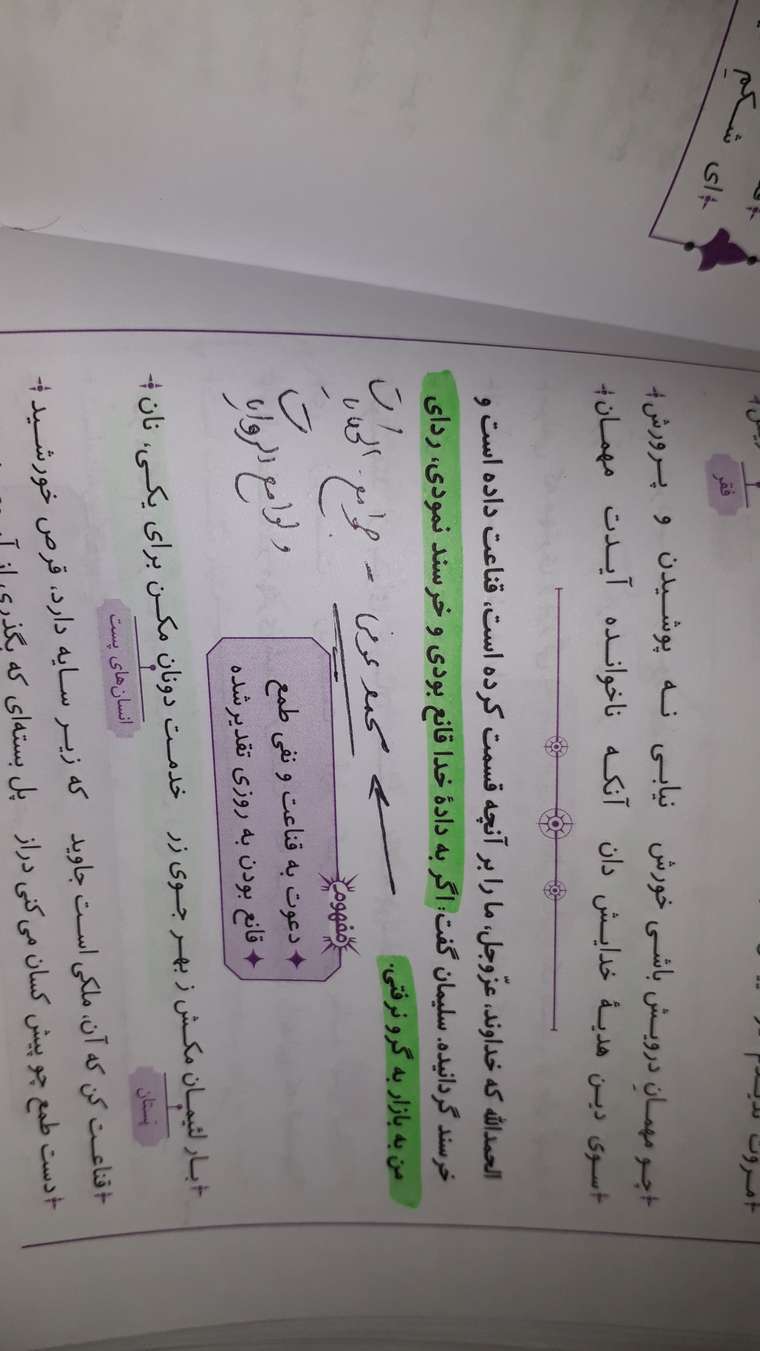 شکمِ
ای
مروت
فقر
چو مهمانِ درویش باشی خورش نیابی نه پوشیدن و پرورش
سوی دین هدیهٔ خدایش دان آنکه ناخوانده آیدت مهمان
الحمدالله که خداوند، عزّوجل، ما را بر آنچه قسمت کرده است، قناعت داده است و
خرسند گردانیده. سلیمان گفت: اگر به دادهٔ خدا قانع بودی و خرسند نمودی، ردای
من به بازار به گرو نرفتی.
محمد عوفی - جوامع الحکایات
و لوامع الروایات
مفهوم
دعوت به قناعت و نفی طمع
قانع بودن به روزی تقدیر شده
بار لئیمان مکش ز بهر جوی زر خدمت دونان مکن برای یکی، نان
پستان
انسان‌های پست
قناعت کن که آن، ملکی است جاوید که زیر سایه دارد، قرص خورشید
دست طمع چو پیش کسان می‌کنی دراز پل بسته‌ای که بگذری، از